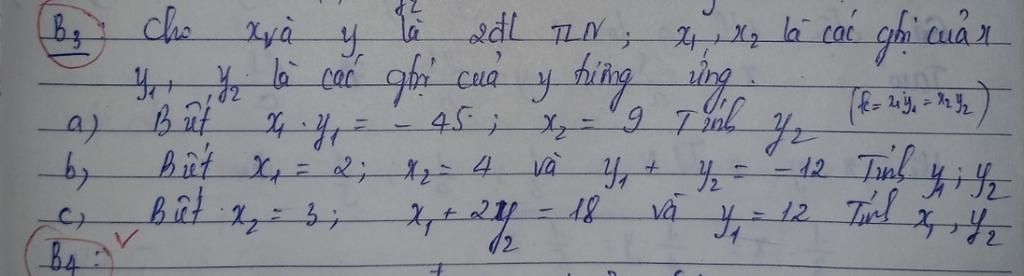 B3: Cho x và y là 2đl TLN; x1, x2 là các gtrị của x
y1, y2 là các gtrị của y tương ứng.
a) Biết x1 . y1 = - 45; x2 = 9 Tính y2 (k = x1y1 = x2y2)
b, Biết x1 = 2; x2 = 4 và y1 + y2 = -12 Tính y1; y2
c, Biết x2 = 3; x1 + 2y2 = 18 và y1 = 12 Tính x1, y2
B4: